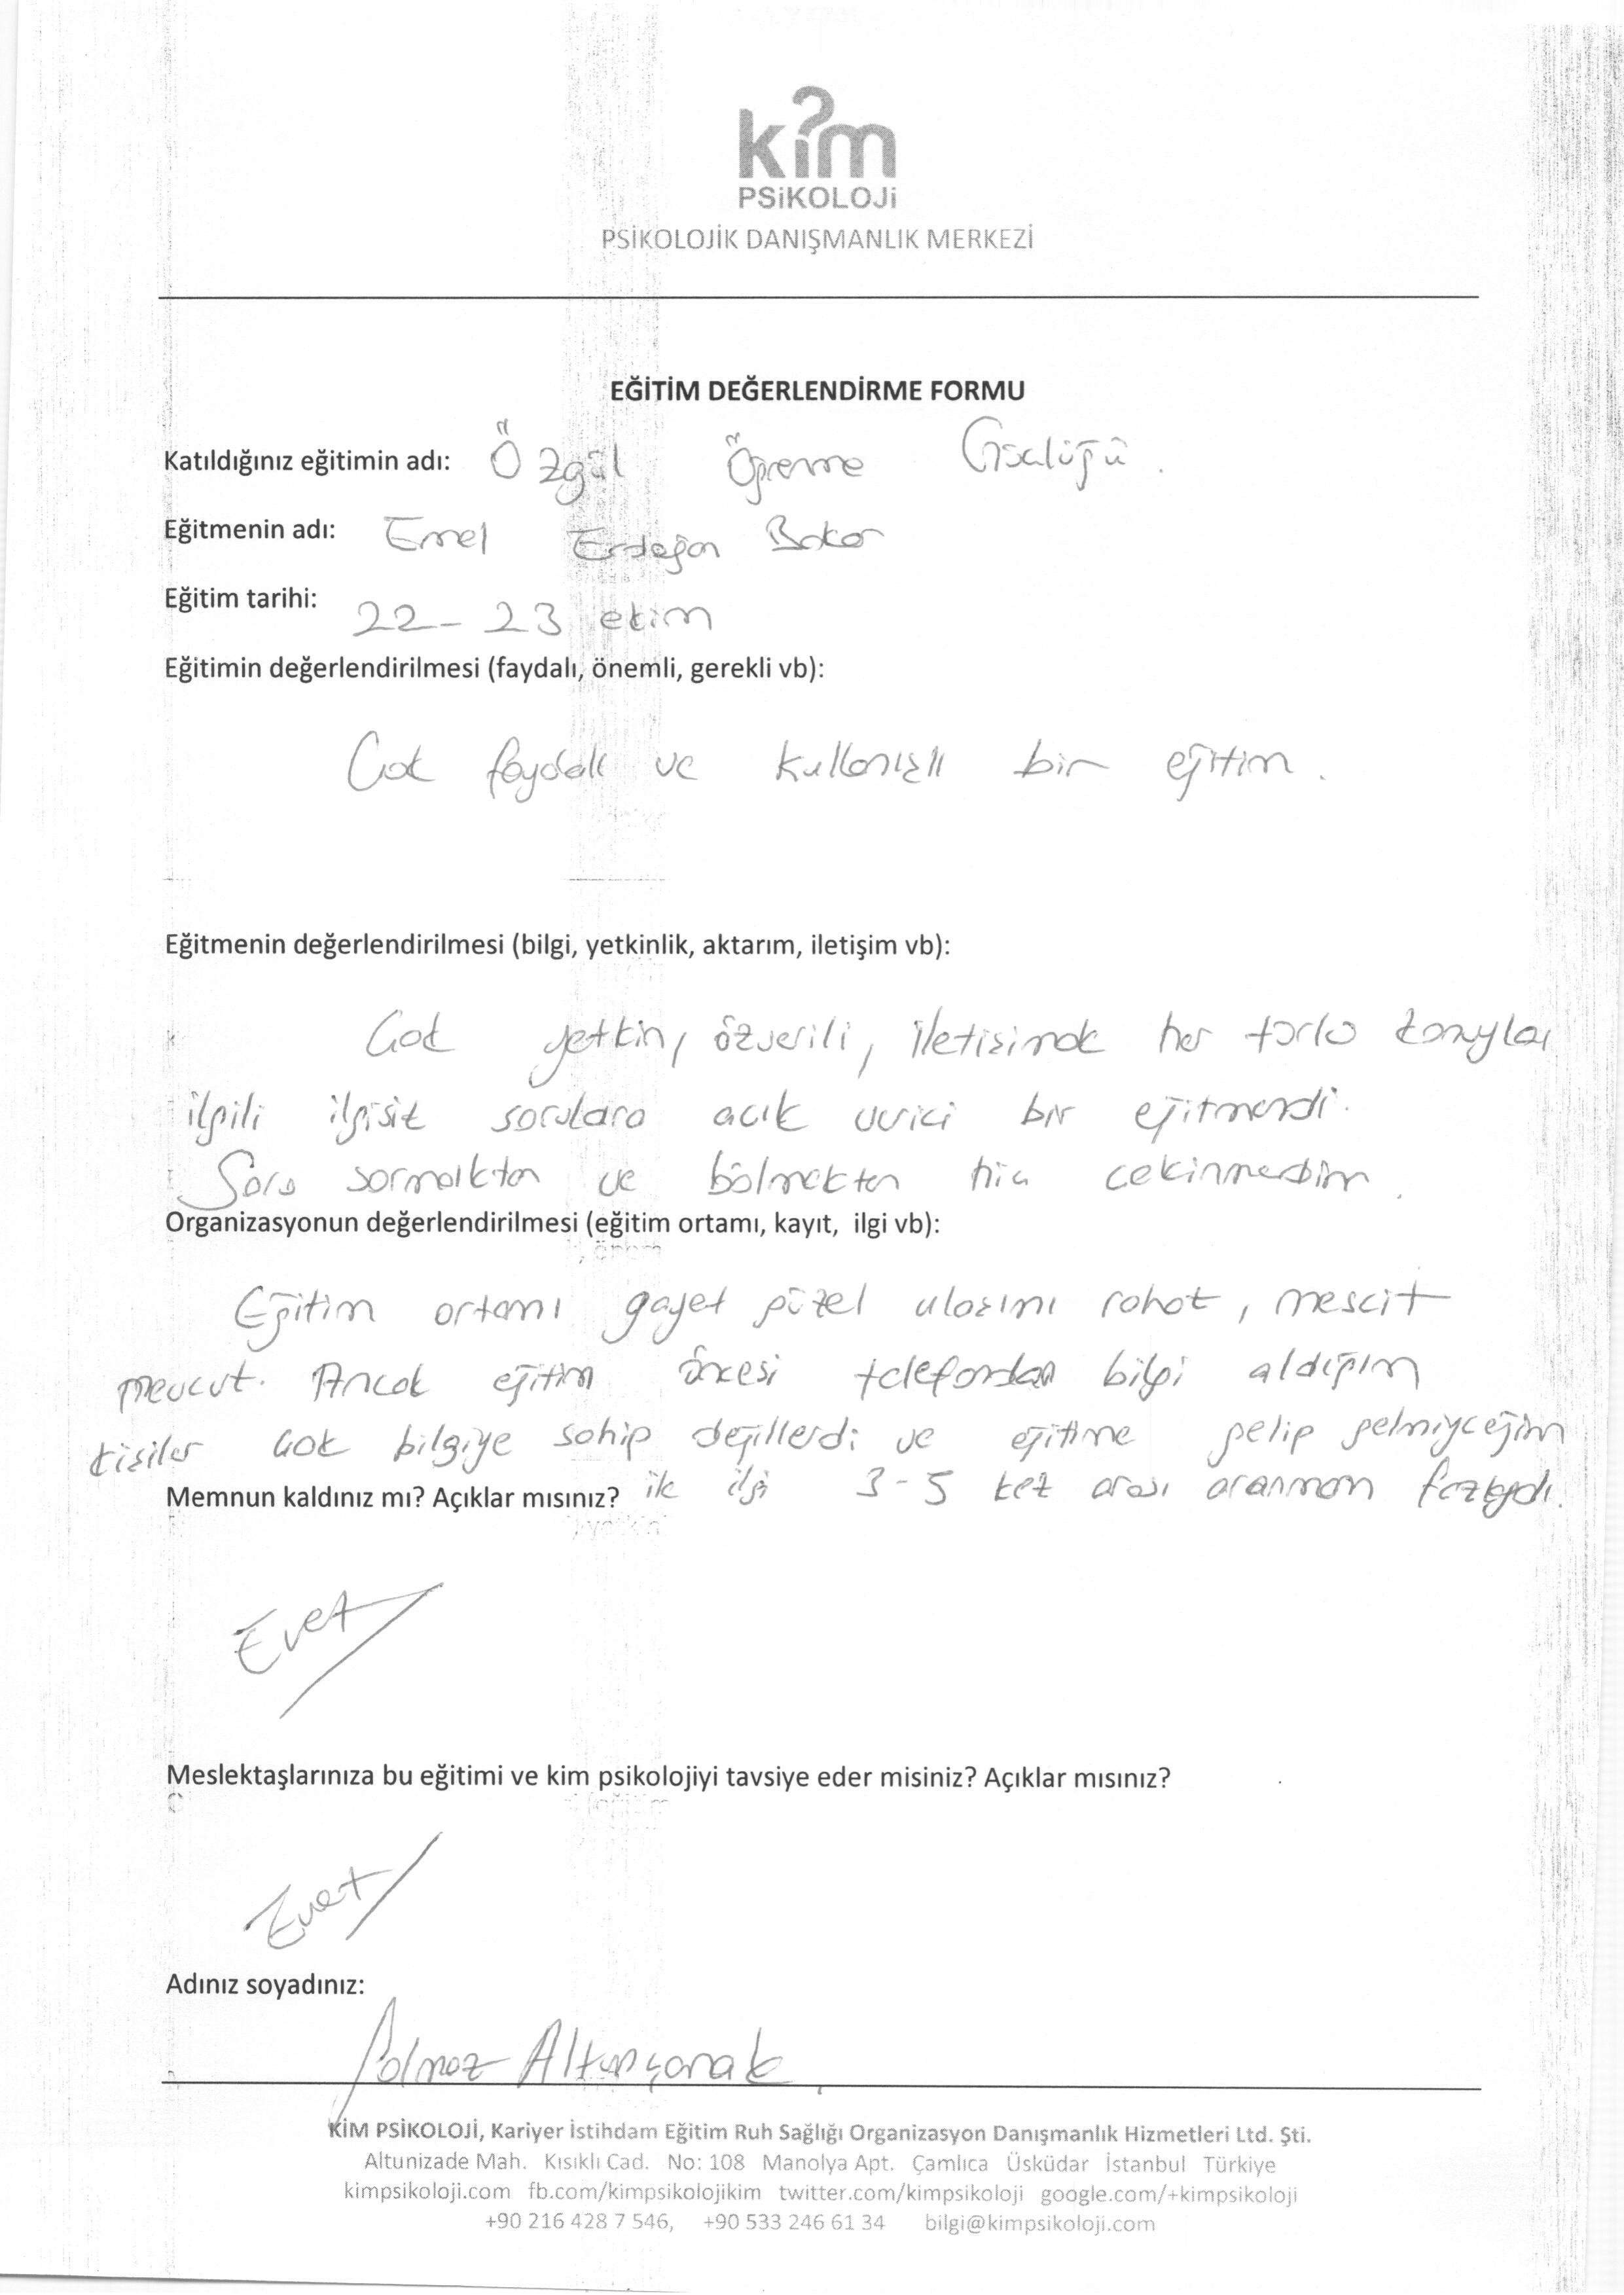 kim
PSiKOLOJi
PSİKOLOJİK DANIŞMANLIK MERKEZİ
EĞİTİM DEĞERLENDİRME FORMU
Katıldığınız eğitimin adı: Özgül Öğrenme Güçlüğü.
Eğitmenin adı: Emel Erdoğan Bakar
Eğitim tarihi: 22-23 ekim
Eğitimin değerlendirilmesi (faydalı, önemli, gerekli vb):
Çok faydalı ve kullanışlı bir eğitim.
Eğitmenin değerlendirilmesi (bilgi, yetkinlik, aktarım, iletişim vb):
Çok yetkin, özverili, iletişimde her türlü konuyla
ilgili ilgisiz sorulara açık bir eğitmendi.
Soru sormaktan ve bölmekten hiç çekinmedim.
Organizasyonun değerlendirilmesi (eğitim ortamı, kayıt, ilgi vb):
Eğitim ortamı gayet güzel ulaşımı rahat, mescit
mevcut. Ancak eğitim öncesi telefondan bilgi aldığım
kişiler çok bilgiye sahip değillerdi ve eğitime gelip gelmiyceğim
Memnun kaldınız mı? Açıklar mısınız? ile ilgi 3-5 kez arası aranmam fazlaydı.
Evet
Meslektaşlarınıza bu eğitimi ve kim psikolojiyi tavsiye eder misiniz? Açıklar mısınız?
Evet
Adınız soyadınız:
Altunçanak
KİM PSİKOLOJİ, Kariyer İstihdam Eğitim Ruh Sağlığı Organizasyon Danışmanlık Hizmetleri Ltd. Şti.
Altunizade Mah. Kısıklı Cad. No: 108 Manolya Apt. Çamlıca Üsküdar İstanbul Türkiye
kimpsikoloji.com fb.com/kimpsikolojikim twitter.com/kimpsikoloji google.com/+kimpsikoloji
+90 216 428 7 546, +90 533 246 61 34 bilgi@kimpsikoloji.com